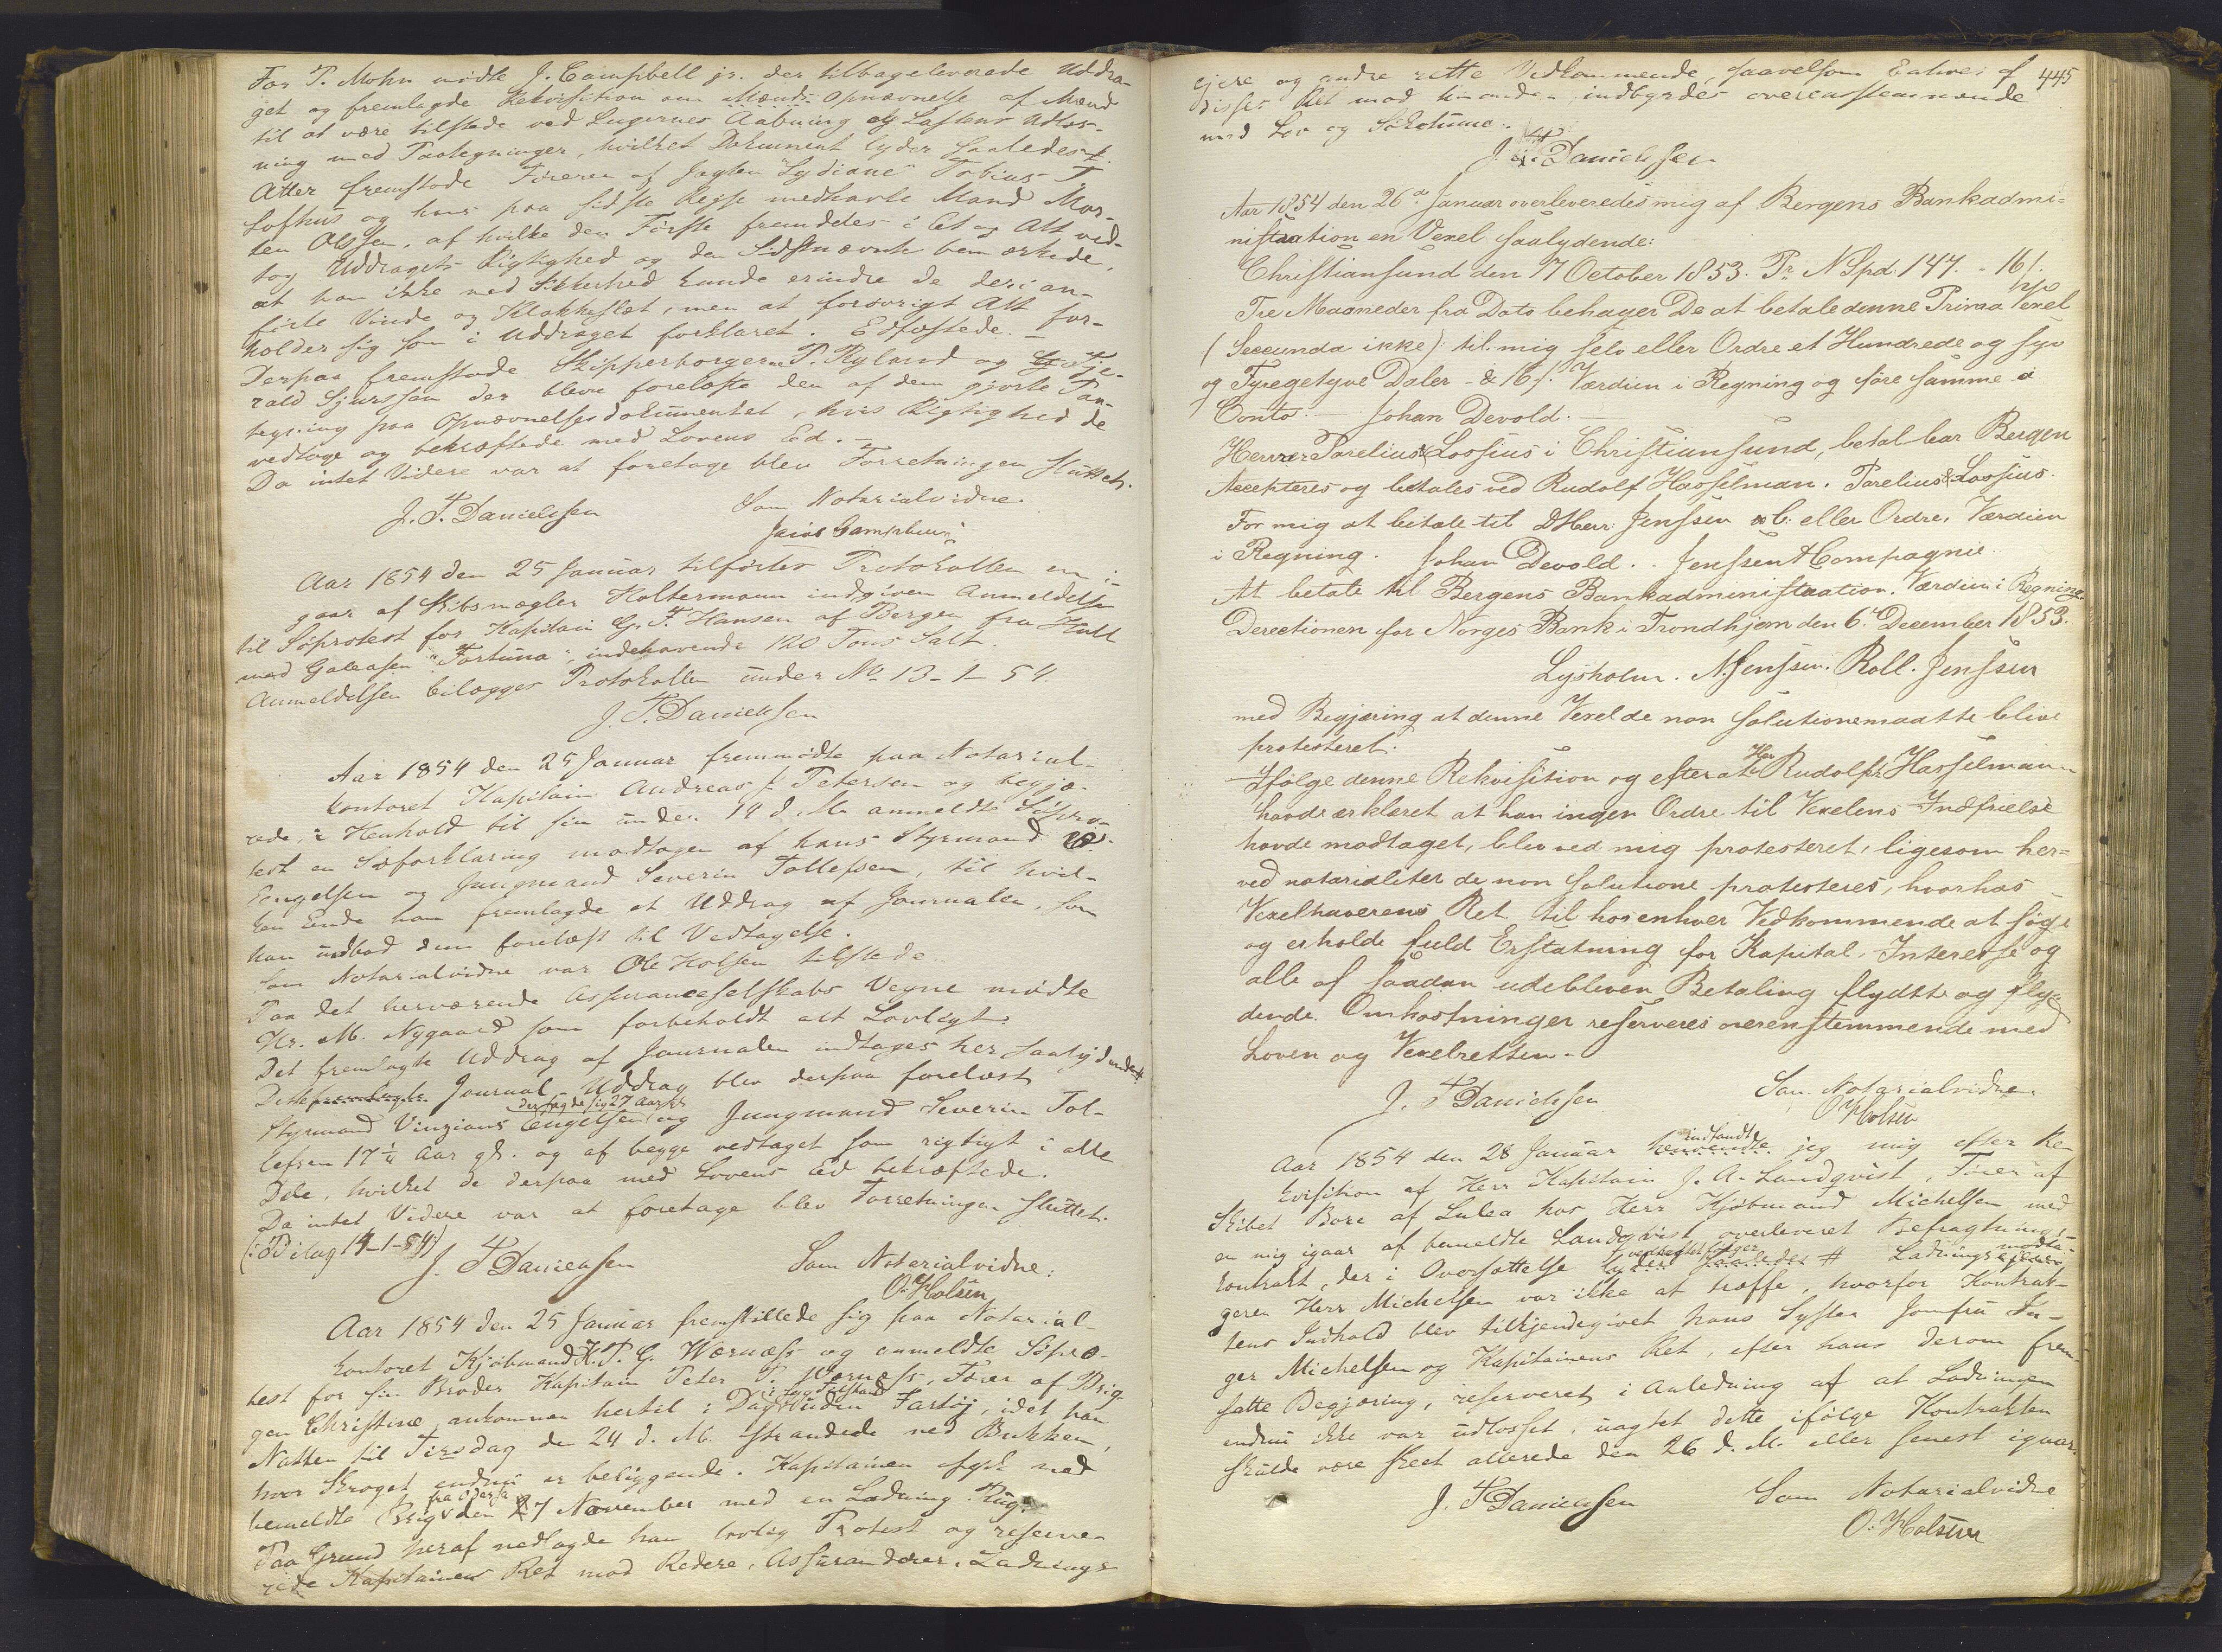 For T. Mohn mødte J. Campbell jr. der tilbageleverede Uddra-
get og fremlagde Rekvisition om Mænds Opnævnelse af Mænd
til at være tilstede ved Lugernes Aabning og Lastens Udlos-
ning med Paategninger, hvilket Dokument lyder saaledes #.
Atter fremstode Føreren af Jagten "Lydiane" Tobias T
Lofthus og hans paa sidste Rejse medhavte Mand Mor-
ten Olsen, af hvilke den Første fremdeles i Et og Alt ved-
tog Uddragets Rigtighed og den Sidstnævnte bemærkede,
at han ikke med Sikkerhed kunde erindre de deri an-
førte Vinde og Klokkeslæt, men at forøvrigt Alt for-
holder sig som i Uddraget forklaret. Edfæstede. —
Derpaa fremstode Skipperborgerne P. Ryland og Tje-
rald Sjursson der bleve forelæste den af dem gjorte Paa-
tegning paa Opnævnelsesdokumentet, hvis Rigtighed de
vedtoge og bekræftede med Lovens Ed. —
Da intet Videre var at foretage blev Forretningen sluttet.
J. F. Danielssen Som Notarialvidne.
Aar 1854 den 25 Januar tilførtes Protokollen en i-
gaar af Skibsmægler Holtermann indgiven Anmeldelse
til Søprotest for Kapitain G. F. Hansen af Bergen fra Hull
med Galeasen "Fortuna", indehavende 120 Tons Salt.
Anmeldelsen bilægges Protokollen under No 13-1-54.
J. F. Danielssen
Aar 1854 den 25 Januar fremmødte paa Notarial-
kontoret Kapitain Andreas Petersen og begjæ-
rede, i Henhold til sin under 19 d. M. anmeldte Søpro-
test en Søforklaring modtagen af hans Styrmand
Engelsen og Jungmand Severin Tollefsen, til hvil-
ken Ende han fremlagde et Uddrag af Journalen, som
han udbad dem forelæst til Vedtagelse.
Som Notarialvidne var Ole Holsen tilstede.
Paa det herværende Assuranceselskabs Vegne mødte
Hr. M. Nygaard som forbeholdt alt Lovligt.
Det fremlagte Uddrag af Journalen indtages her saalydende #.
Dette fremlagte Journal-Uddrag blev derpaa forelæst
der sagde sig 27 Aar gl.
Styrmand Vinzians Engelsen og Jungmand Severin Tol-
lefsen 17¼ Aar gl. og af begge vedtaget som rigtigt i alle
Dele, hvilket de derpaa med Lovens Ed bekræftede.
Da intet Videre var at foretage blev Forretningen sluttet.
(: Bilag 14-1-54 :)
J. F. Danielssen Som Notarialvidne:
O. Holsen
Aar 1854 den 25 Januar fremstillede sig paa Notarial-
kontoret Kjøbmand K. T. G. Wærnæss og anmeldte Søpro-
test for sin Broder Kapitain Peter T. Wærnæss, Fører af Brig-
gen Christine, ankommen hertil i Dag uden Fartøj, idet han
Natten til Tirsdag den 24 d. M. strandede ved Bukken,
hvor Skroget endnu er beliggende. Kapitainen afgik med
fra Odessa
bemeldte Brig den 7 November med en Ladning Rug.
Paa Grund heraf nedlagde han lovlig Protest og reserve-
rede Kapitainens Ret mod Redere, Assurandører, Ladnings-
445
ejere og andre rette Vedkommende, saavelsom Enhver af
disses Ret mod hinanden indbyrdes overensstemmende
med Lov og Sökotume.
J. F. Danielssen
Aar 1854 den 26de Januar overleveredes mig af Bergens Bankadmi-
nistration en Vexel saalydende:
Christiansund den 17 October 1853. Pr N Spd. 147. " 16 s.
Tre Maaneder fra Dato behager De at betale denne Prima Vexel
(Secunda ikke) til mig selv eller Ordre et Hundrede og syv
og Fyrgetyve Daler - & 16 s. Værdien i Regning og føre samme a
Conto. — Johan Devold. —
Herrer Parelius & Lossius i Christiansund, betalbar Bergen
Accepteres og betales ved Rudolf Hasselman. Parelius & Lossius.
For mig at betale til DHerr Jenssen & C. eller Ordre. Værdien
i Regning. Johan Devold. Jenssen & Compagnie.
At betale til Bergens Bankadministration. Værdien i Regning.
Derectionen for Norges Bank i Trondhjem den 6te December 1853.
Lysholm. N. Jenssen. Roll. Jenssen
med Begjæring at denne Vexel de non solutione maatte blive
protesteret.
Ifølge denne Rekvisition og efter at Herr Rudolph Hasselmann
havde erklæret at han ingen Ordre til Vexelens Indfrielse
havde modtaget, blev ved mig protesteret, ligesom her-
ved notarialiter de non solutione protesteres, hvorhos
Vexelhaverens Ret til hos enhver Vedkommende at søge
og erholde fuld Erstatning for Kapital, Interesse og
alle af saadan udebleven Betaling flydte og flyd-
dende Omkostninger reserveres overensstemmende med
Loven og Vexelretten. -
J. F. Danielssen Som Notarialvidne.
O Holsen
indfandt
Aar 1854 den 28 Januar henvendte jeg mig efter Re-
kvisition af Herr Kapitain J. A. Landqvist, Fører af
Skibet Bore af Lulea hos Herr Kjøbmand Michelsen med
en mig igaar af bemeldte Landqvist overleveret Befragtnings-
kontrakt, der i Oversættelse lyder saaledes # Ladningsmodta-
geren Herr Michelsen var ikke at træffe, hvorfor Kontrak-
tens Indhold blev tilkjendegivet hans Syster Jomfru In-
ger Michelsen og Kapitainens Ret, efter hans derom frem-
satte Begjæring, reserveret i Anledning af at Ladningen
endnu ikke var udlosset, uagtet dette ifølge Kontrakten
skulde være skeet allerede den 26 d. M. eller senest igaar.
J. F. Danielssen Som Notarialvidne
O. Holsen